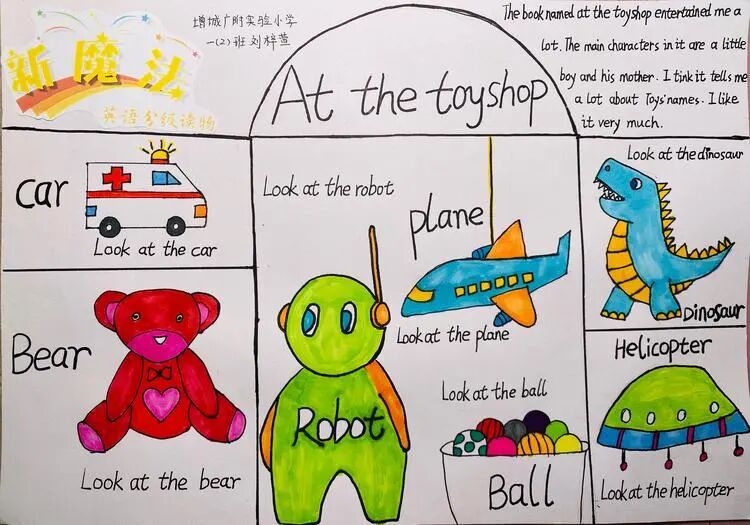 新魔法
英语分级读物
增城广附实验小学
一(2)班 刘梓萱
At the toyshop
The book named at the toyshop entertained me a
lot. The main characters in it are a little
boy and his mother. I tink it tells me
a lot about Toys' names. I like
it very much.
car
Look at the car
Bear
Look at the bear
Look at the robot
Robot
plane
Look at the plane
Look at the ball
Ball
Look at the dinosaur
Dinosaur
Helicopter
Look at the helicopter